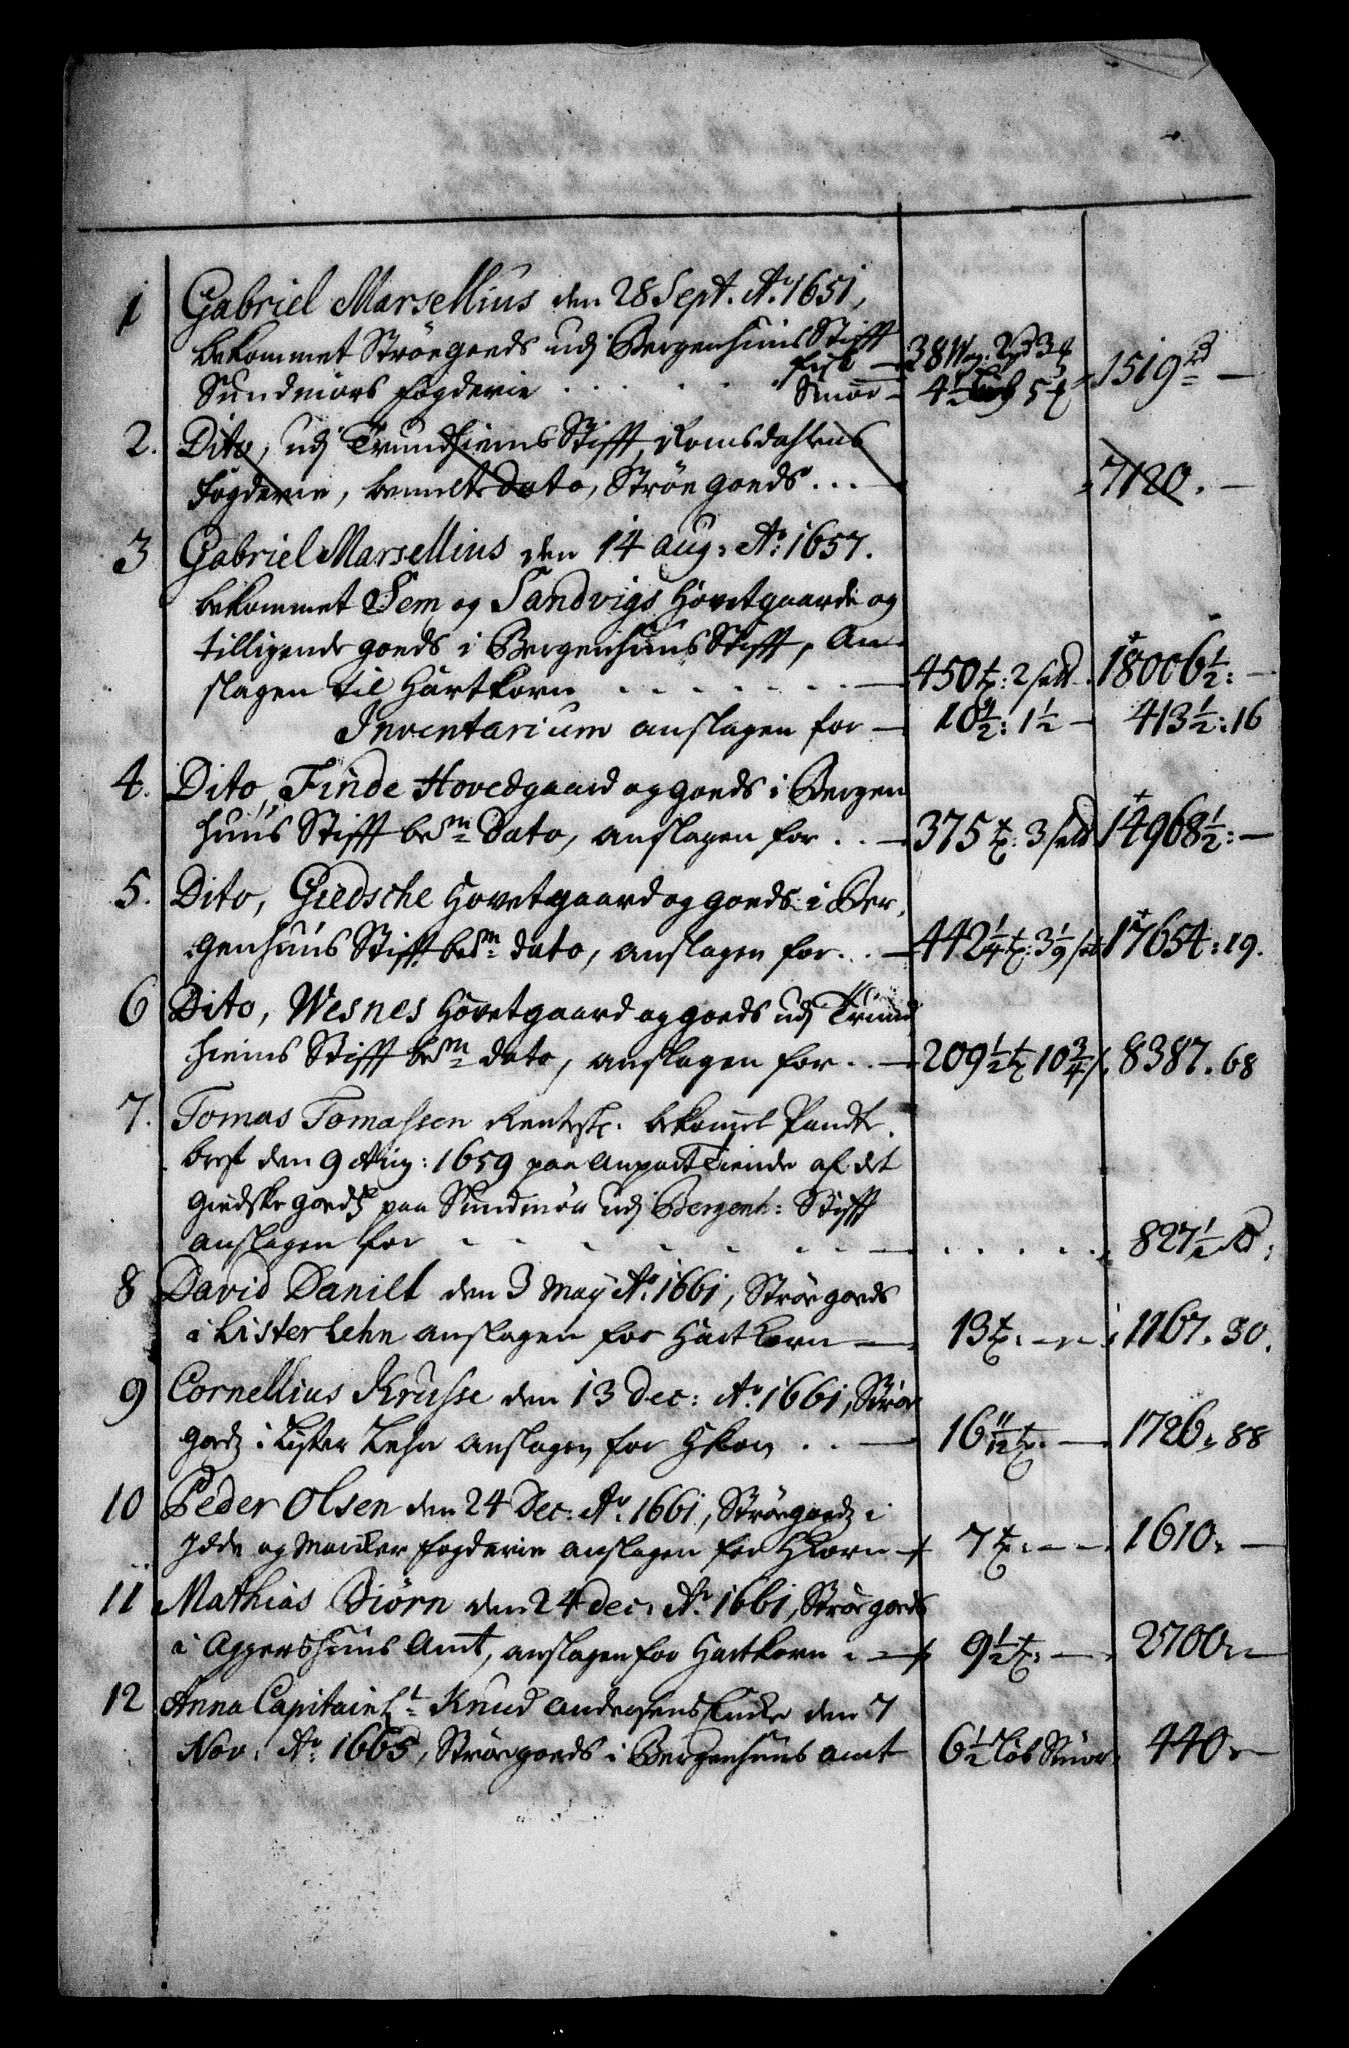 1 Gabriel Marsellius den 28 Sept. Ao. 1651,
bekommet Strøegoeds udj Bergenhuus Stifft
fisk — 38 Wog: 2 pd 3 ℔
Sundmørs fogderie . . . . . Smør — 4½ Løb 5 ℔ 1519 rd —
2. Dito, udj Trundhiems Stifft, Romsdahlens
fogderie, bemelte Dato, Strøe goeds . . . — 7120. —
3 Gabriel Marsellius den 14 aug: Ao: 1657.
bekommet Sem og Sandvigs Hovetgaarde og
tilligende goeds i Bergenhuus Stifft, An-
slagen til Hartkorn . . . . . . — 450 t: 2 skll. 18006½: —
Inventarium anslagen for — 10½: 1½ — 413½: 16
4. Dito, Finde Hovedgaard og goeds i Bergen
huus Stifft bem Dato, anslagen for . . — 375 t: 3 skll 14968½: —
5. Dito, Giedsche Hovetgaard og goeds i Ber-
genhuus Stifft bem dato, anslagen for . . — 442¼ t: 3½ 17654: 19.
6 Dito, Wesnes Hovetgaard og goeds udj Trund
hiems Stifft bem dato, anslagen for . . — 209½ t 10¾ 8387. 68
7. Tomas Tomassen Rentesk: bekomet Pandte
bref den 9 Aug: 1659 paa Anpart Tiende af det
Giedske goedz paa Sundmør udj Bergenh: Stifft
anslagen for - - - - - - — . . . . 827½ rd:
8 David Danilt den 3 May Ao. 1661, Strøe goeds
i Lister Lehn anslagen for Hartkorn — 13 t. — 1167. 30.
9 Cornellius Krusse den 13 Dec: Ao. 1661, Strøe
goedz i Lister Lehn anslagen for Hkorn . . — 16 11/12 t. — 1726. 88
10 Peder Olsen den 24 Dec: Ao. 1661, Strøegoedz i
Idde og Marker fogderie anslagen for HKorn — 7 t. — 1610. —
11 Mathias Biørn den 24 dec: Ao. 1661, Strøe goeds
i Aggershuus Amt, anslagen for Hartkorn . — 9½ t: — 2700. —
12 Anna Capitain Lt Knud Andersens Encke den 7
Nov: Ao: 1665, Strøegoeds i Bergenhuus Amt 6½ Løb Smør 440. —